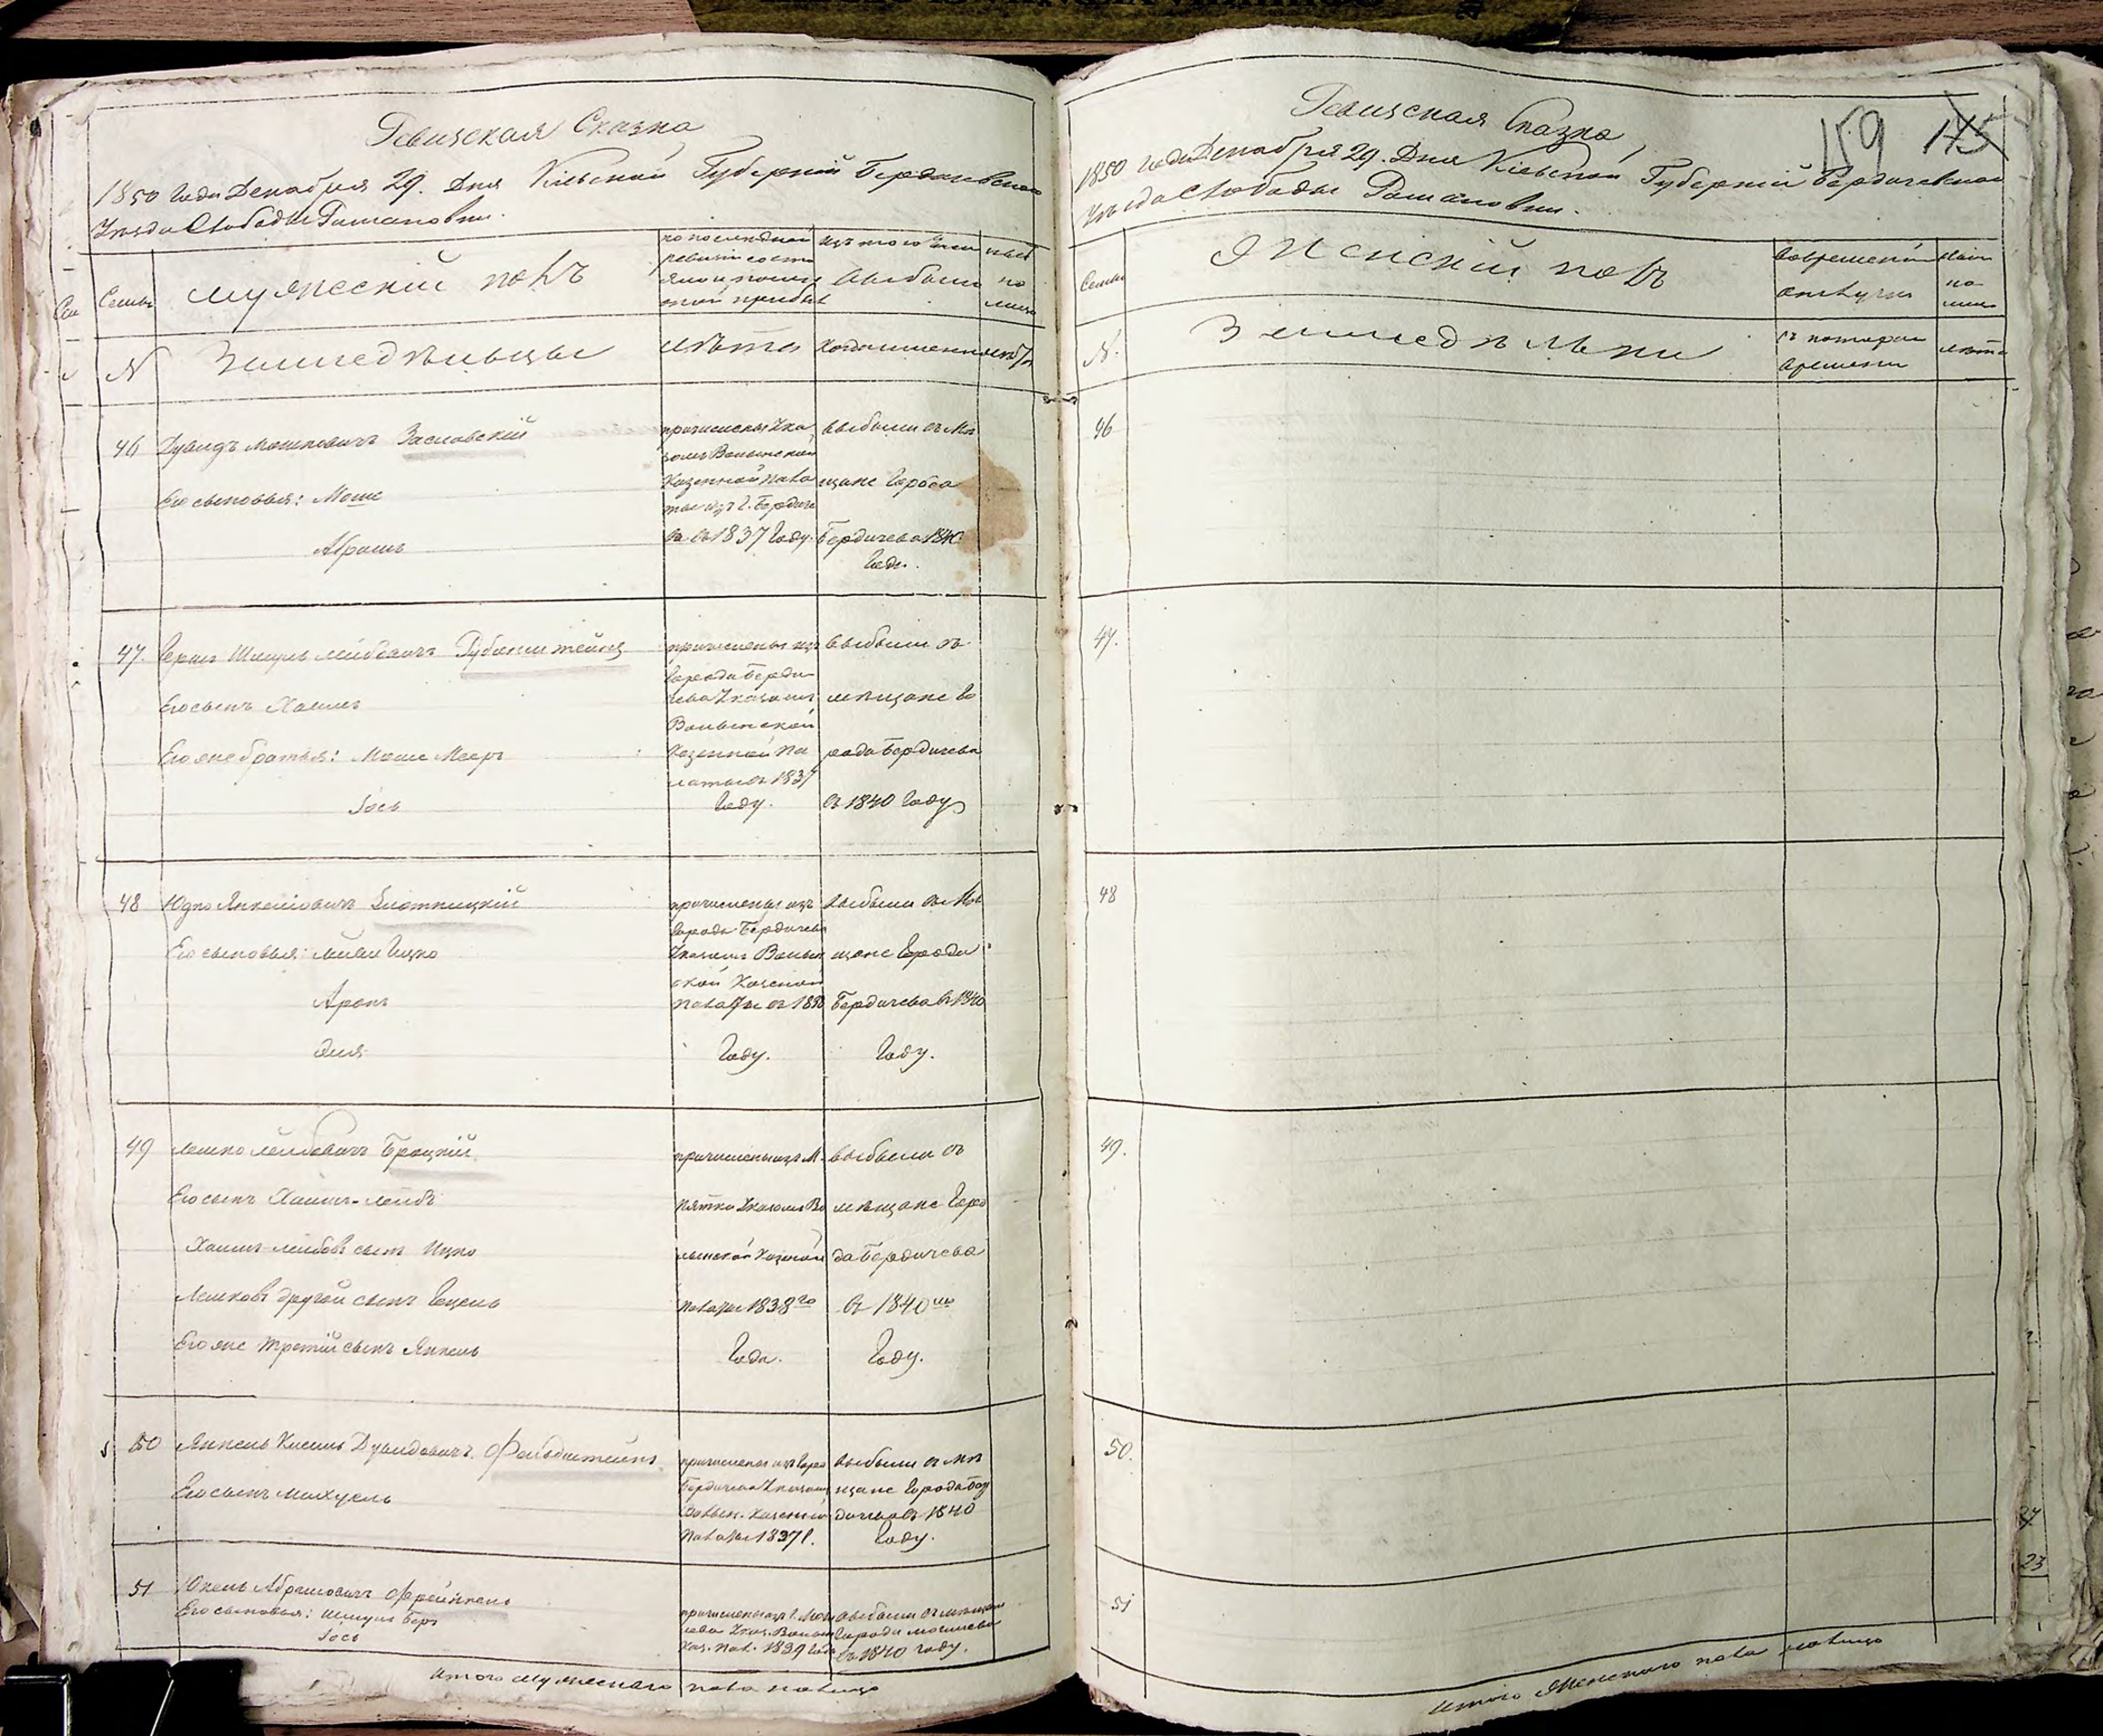 Ревизская Сказка
1850 года Декабря 29. Дня Кіевской Губерніи Бердичевского
Уезда Слободы Романовки.
Семьи
мужескій полъ
по последней
ревизіи состо
яло и после
оной прибыло
изъ того числа
выбыло
ныне
на
лицо
№
Земледельцы
лета
когда именно
лета
46 Дувидъ Мошковичъ Заславскій
Его сыновья: Моше
Абрамъ
причислены Ука
зомъ Волынской
Казенной Пала
ты изъ г. Бердиче
ва въ 1837 году.
выбыли въ Ме
щане города
Бердичева 1840
года.
47. Герш Шмуль Лейбовичъ Рубинштейнъ
Его сынъ Хаимъ
Его же братья: Моше Мееръ
Іось
причислены изъ
города Берди
чева Указомъ
Волынской
Казенной Па
латы въ 1837
году.
выбыли въ
мещане го
рода Бердичева
въ 1840 году
48 Юдко Янкелiовичъ Злотницкій
Его сыновья: Ицко
Аронъ
Эля
причислены изъ
города Бердичева
Указомъ Волын
ской Казенной
Палаты въ 1838
году.
выбыли въ Ме
щане города
Бердичева в 1840
году.
49 Лейбовичъ Бродцкій
Его сынъ Хаимъ-Лейбъ
Хаимъ-Лейбовъ сынъ Ицко
другой сынъ
Его же третій сынъ Янкель
причислены изъ М.
Пятка Указомъ Во
лынской Казенной
Палаты 1838го
года.
выбыли въ
мещане горо
да Бердичева
въ 1840мъ
году.
50 Янкель Кисель Дувидовичъ Фельдштейнъ
Его сынъ
причислены изъ горо
Бердичева Указомъ
Волын. Казенной
Палаты 1837 г.
выбыли въ ме
щане города Бер
дичева въ 1840
году.
51 Абрамовичъ Френкель
Его сыновья: Шмуль Беръ
Іось
Указ. Волын
Каз. Пал. 1839 года
выбыли въ мещане
города
въ 1840 году.
Итого мужескаго пола налицо
Ревизская Сказка
159 175
1850 года Декабря 29. Дня Кіевской Губерніи Бердичевской
Уезда Слободы Романовки.
Семьи
Женскій полъ
во временной
отлучке
на
лицо
№.
Земледельки
съ котораго
времени
лета
46
47.
48
49.
50.
51
Итого Женскаго пола налицо
27
23